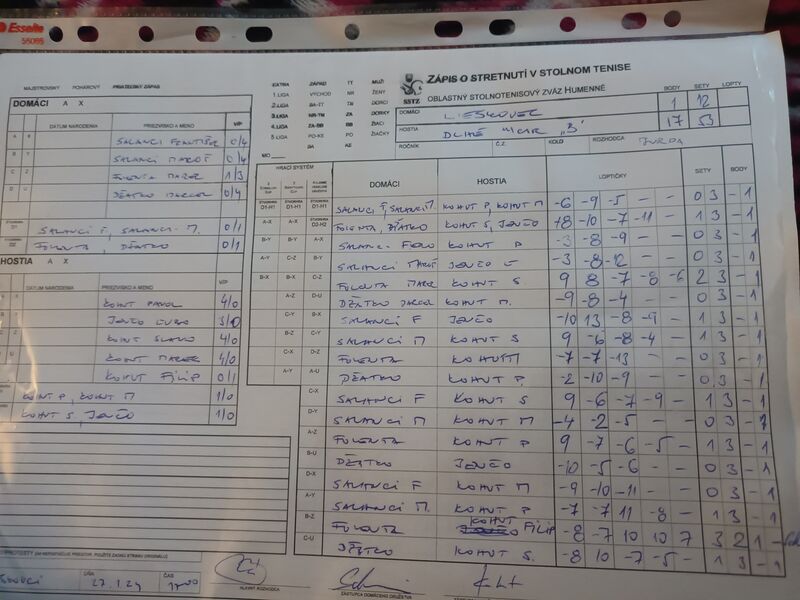 Esselte
55085
MAJSTROVSKÝ POHÁROVÝ PRIATEĽSKÝ ZÁPAS
EXTRA ZÁPAD TT MUŽI
1. LIGA VÝCHOD NR ŽENY
2. LIGA BA-TT TN DORCI
3. LIGA NR-TN ZA DORKY
4. LIGA ZA-BB BB ŽIACI
5. LIGA PO-KE PO ŽIAČKY
SSTZ
ZÁPIS O STRETNUTÍ V STOLNOM TENISE
OBLASTNÝ STOLNOTENISOVÝ ZVÄZ HUMENNÉ
BODY SETY LOPTY
DOMÁCI LIESKOVEC 1 12
HOSTIA DLHÉ "B" 17 53
ROČNÍK Č.Z. KOLO ROZHODCA
DOMÁCI A X
DÁTUM NARODENIA PRIEZVISKO A MENO V/P
SALANCI FRANTIŠEK 0/4
SALANCI MAROŠ 0/4
FOLENTA MAREK 1/3
DŽATKO MAREK 0/4
SALANCI F, SALANCI M. 0/1
FOLENTA, DŽATKO 0/1
HOSTIA A X
DÁTUM NARODENIA PRIEZVISKO A MENO V/P
KOHUT PAVOL 4/0
JENČO 3/0
KOHUT SLAVO 4/0
KOHUT MAREK 4/0
KOHUT FILIP 0/1
KOHUT P, KOHUT M 1/0
KOHUT S, JENČO 1/0
HRACÍ SYSTÉM DOMÁCI HOSTIA LOPTIČKY SETY BODY
SALANCI F, SALANCI M. KOHUT P, KOHUT M -6 -9 -5 - - 0 3 - 1
FOLENTA, DŽATKO KOHUT S, JENČO +8 -10 -7 -11 - 1 3 - 1
B-Y A-Y B-Y SALANCI KOHUT P -3 -8 -9 - - 0 3 - 1
A-Y C-Z B-Y SALANCI MAROŠ JENČO -3 -8 -12 - - 0 3 - 1
B-X B-X C-Z FOLENTA MAREK KOHUT S. 9 8 -7 -8 -6 2 3 - 1
A-Z D-U DŽATKO MAREK KOHUT M. -9 -8 -4 - - 0 3 - 1
C-Y B-X SALANCI F JENČO -10 13 -8 -9 - 1 3 - 1
B-Z C-Y SALANCI M KOHUT S 9 -6 -8 -4 - 1 3 - 1
C-X D-Z FOLENTA KOHUT M -7 -7 -13 - - 0 3 - 1
A-Y A-U DŽATKO KOHUT P. -2 -10 -9 - - 0 3 - 1
C-X SALANCI F KOHUT S 9 -6 -7 -9 - 1 3 - 1
D-Y SALANCI M KOHUT M -4 -2 -5 - - 0 3 - 1
A-Z FOLENTA KOHUT P 9 -7 -6 -5 - 1 3 - 1
B-U DŽATKO JENČO -10 -5 -6 - - 0 3 - 1
D-X SALANCI F KOHUT M -9 -10 -11 - - 0 3 - 1
A-Y SALANCI M. KOHUT P -7 -7 11 -8 - 1 3 - 1
B-Z FOLENTA KOHUT FILIP -8 -7 10 10 7 3 2 1 -
C-U DŽATKO KOHUT S. -8 10 -7 -5 - 1 3 - 1
LIGA 27.1.24 ČAS 17:00
HLAVNÝ ROZHODCA
ZÁSTUPCA DOMÁCEHO DRUŽSTVA